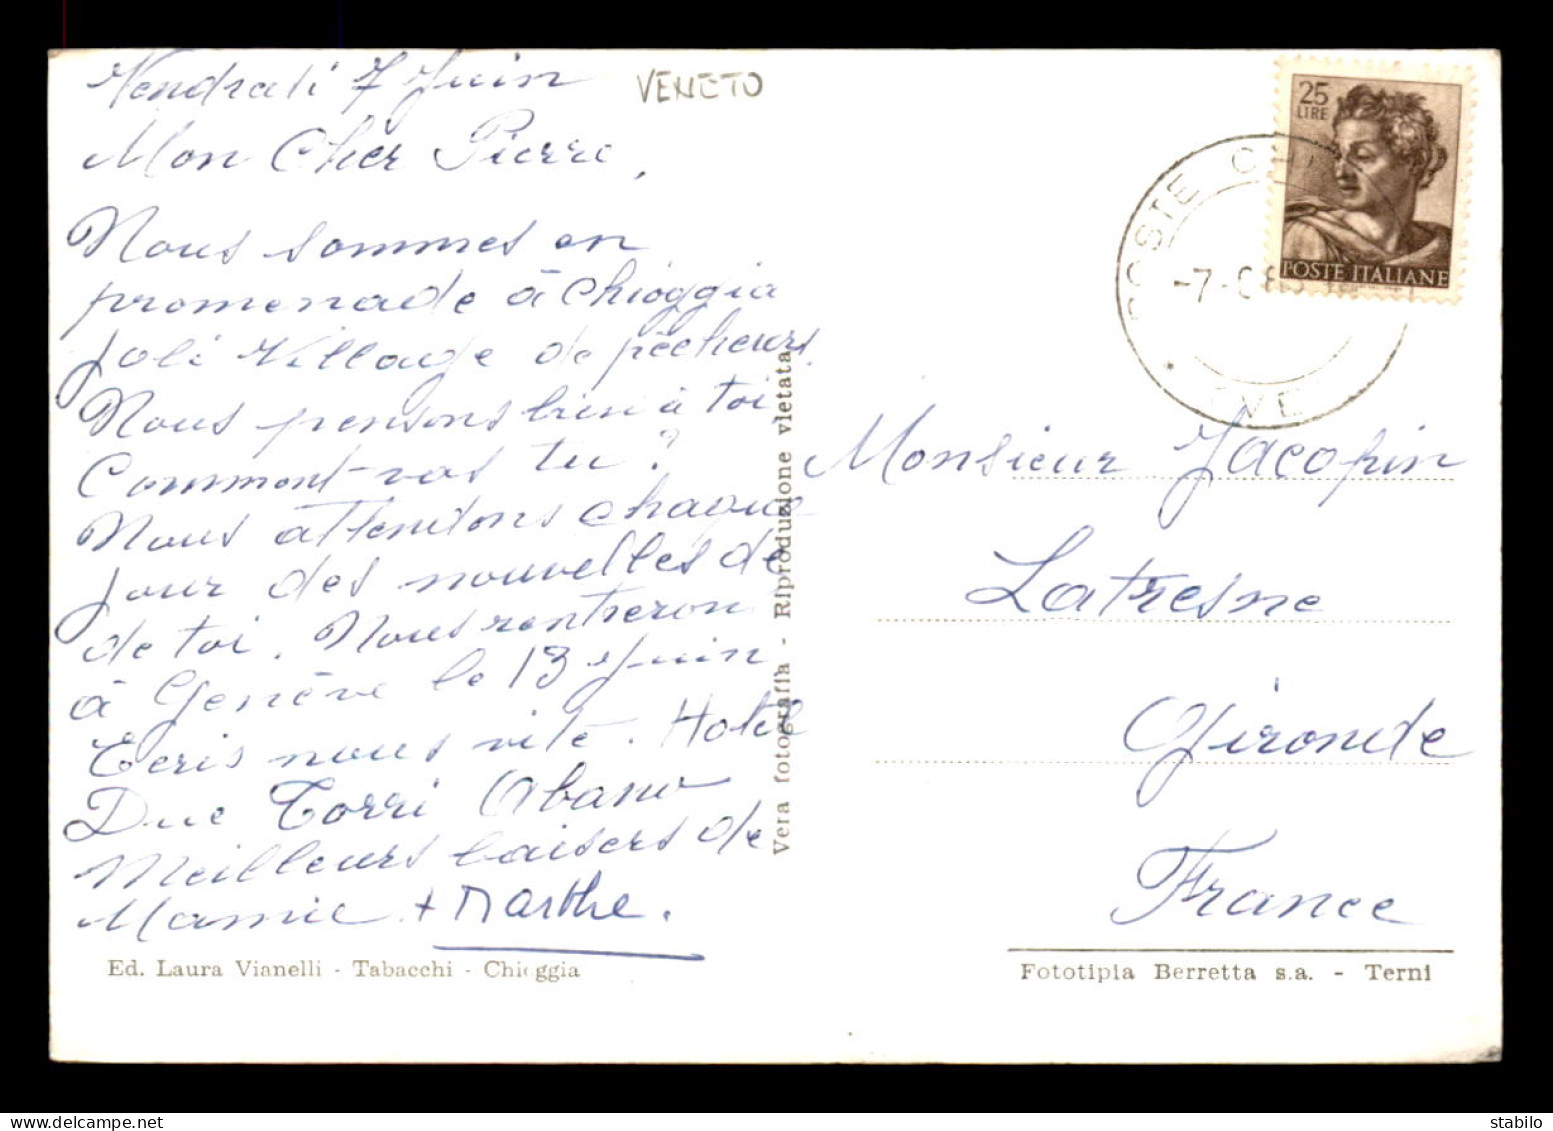 Vendredi 7 Juin
VENETO
Mon Cher Pierre,
Nous sommes en
promenade à Chioggia
Joli Village de pêcheurs
Nous pensons bien à toi
Comment-vas tu ?
Nous attendons chaque
jour des nouvelles de
de toi. Nous rentreron
à Genève le 13 Juin
Ecris nous vite. Hotel
Due Torri Abano
Meilleurs baisers de
Mamie + Marthe.
Ed. Laura Vianelli - Tabacchi - Chioggia
Vera fotografia - Riproduzione vietata
25
LIRE
POSTE ITALIANE
POSTE CH
-7-
VE
Monsieur Jacopin
Latresne
Gironde
France
Fototipia Berretta s.a. - Terni
delcampe.net
stabilo